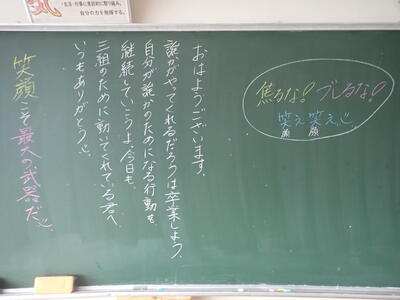 生活・行事に意欲的に取り組み、
自分の力を発揮する。
焦るな！ブレるな！
笑え笑え
顔 顔
おはようございます。
誰かがやってくれるだろうは卒業しよう。
自分が誰かのためになる行動を
継続していこうよ、今日も。
三組のために動いてくれている君へ
いつもありがとう
笑顔こそ最大の武器だ